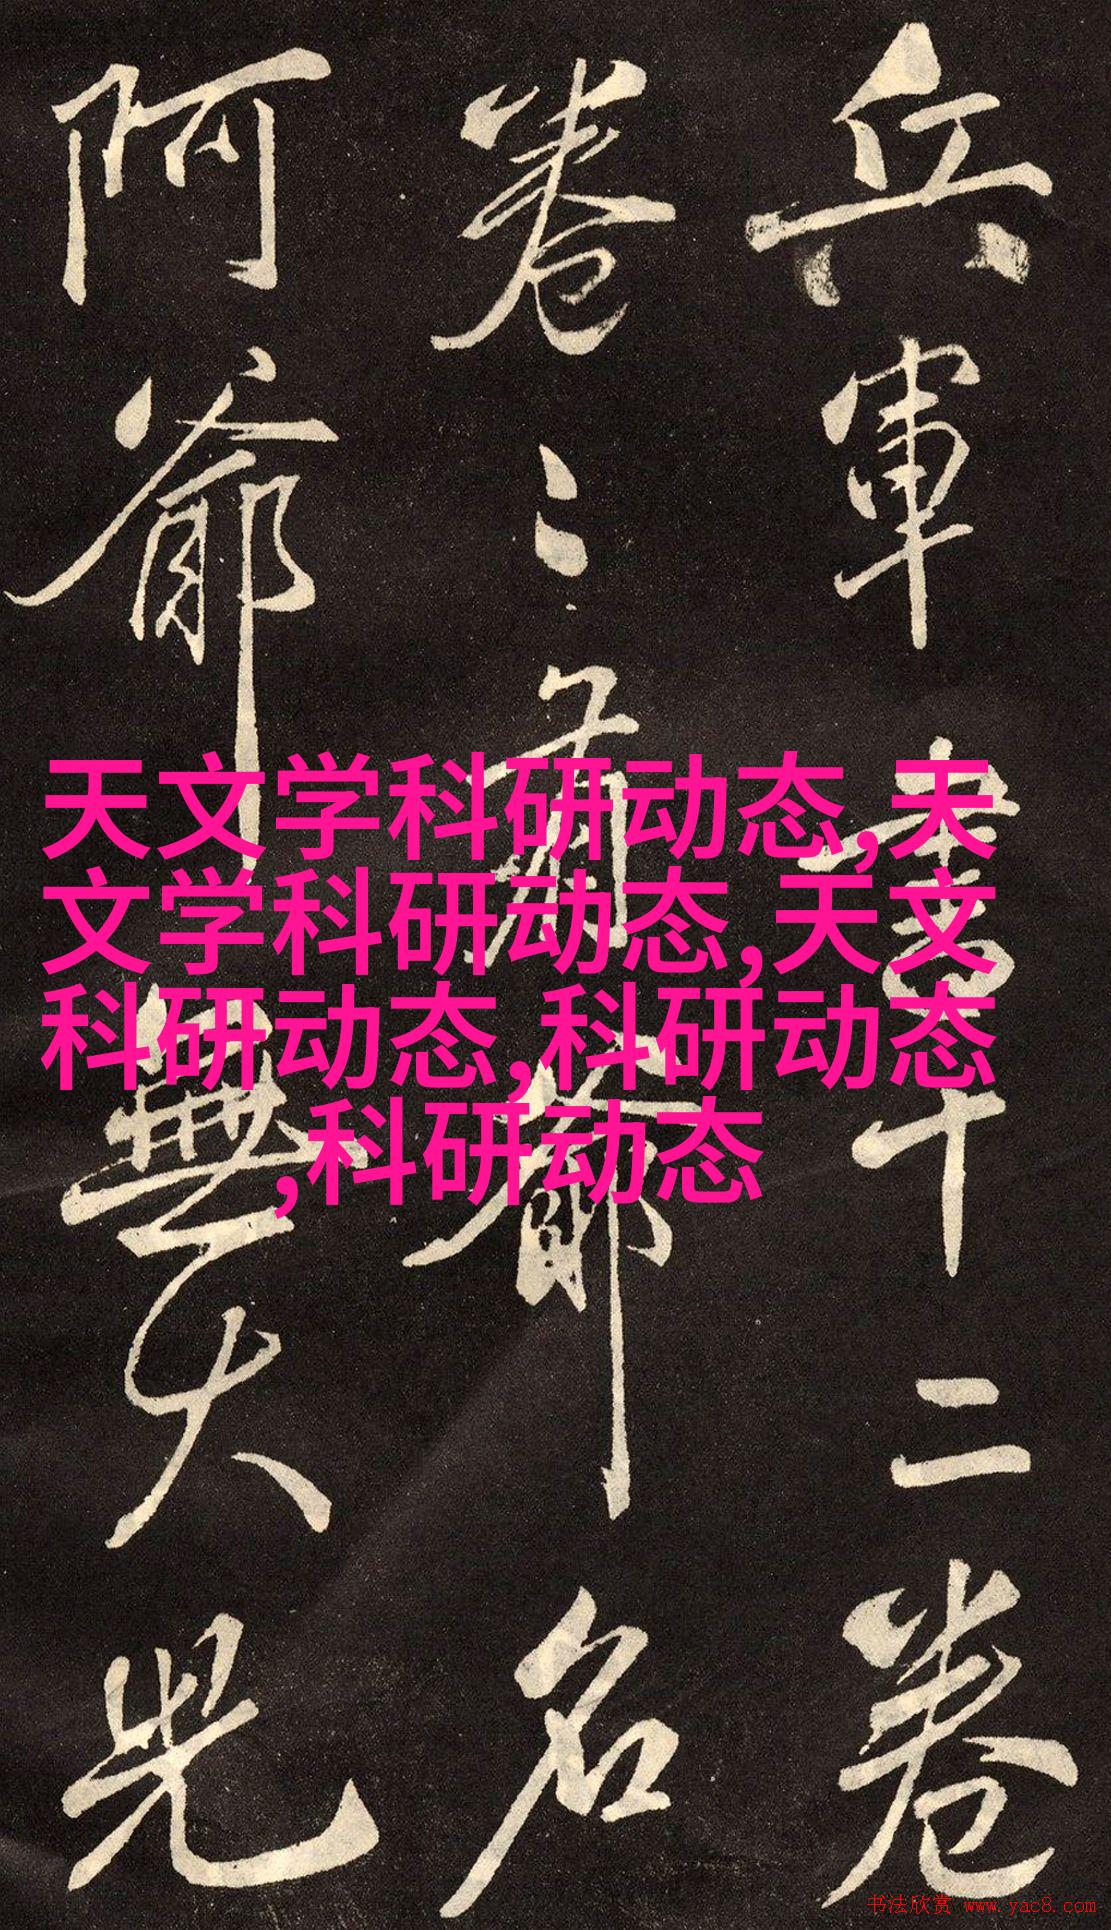 兵軍書十二卷
卷〻有爺名
阿爺無大兒
天文学科研动态,天
文学科研动态,天文
科研动态,科研动态
,科研动态
书法欣赏 www.yac8.com